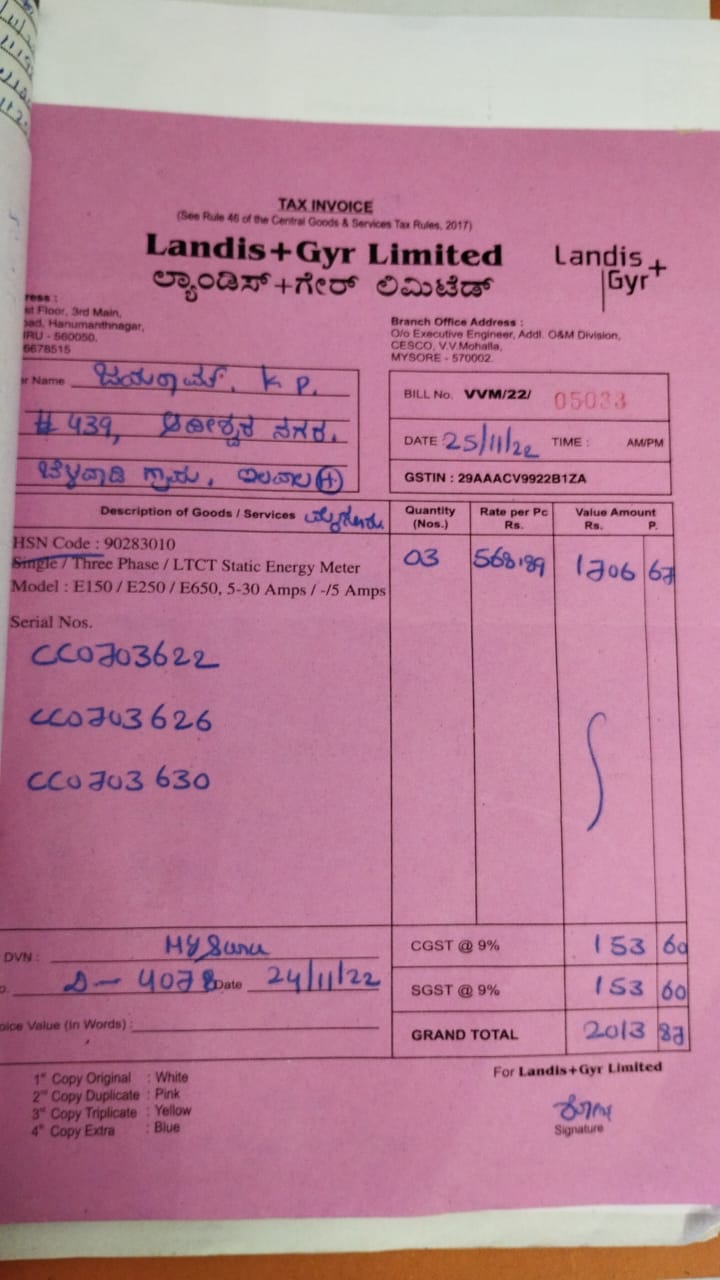 TAX INVOICE
(See Rule 46 of the Central Goods & Services Tax Rules, 2017)
Landis+Gyr Limited
ಲ್ಯಾಂಡಿಸ್+ಗೇರ್ ಲಿಮಿಟೆಡ್
Landis+
Gyr
ress :
st Floor, 3rd Main,
oad, Hanumanthnagar,
RU - 560050.
6678515
Branch Office Address :
O/o Executive Engineer, Addl. O&M Division,
CESCO, V.V.Mohalla,
MYSORE - 570002.
r Name ಜಯರಾಮ್. K P.
# 439, ನಗರ.
ಗ್ರಾಮ, (H)
BILL No. VVM/22/ 05033
DATE 25/11/22 TIME : AM/PM
GSTIN : 29AAACV9922B1ZA
Description of Goods / Services ಮೈಸೂರು
Quantity (Nos.)
Rate per Pc Rs.
Value Amount Rs. P.
HSN Code : 90283010
Single / Three Phase / LTCT Static Energy Meter
Model : E150 / E250 / E650, 5-30 Amps / -/5 Amps
03 568.89 1706 67
Serial Nos.
CC0703622
CC0703626
CC0703630
DVN : Mysuru
CGST @ 9% 153 60
o. D-4078 Date 24/11/22
SGST @ 9% 153 60
oice Value (In Words) :
GRAND TOTAL 2013 87
1st Copy Original : White
2nd Copy Duplicate : Pink
3rd Copy Triplicate : Yellow
4th Copy Extra : Blue
For Landis+Gyr Limited
Signature